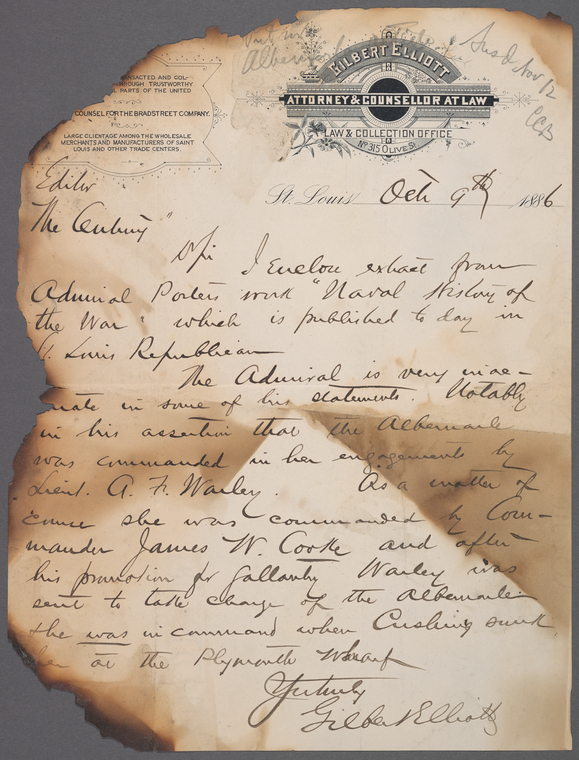 Sus d Nov 12
CCB
ANSACTED AND COL-
HROUGH TRUSTWORTHY
L PARTS OF THE UNITED
COUNSEL FOR THE BRADSTREET COMPANY.
LARGE CLIENTAGE AMONG THE WHOLESALE
MERCHANTS AND MANUFACTURERS OF SAINT
LOUIS AND OTHER TRADE CENTERS.
GILBERT ELLIOTT
ATTORNEY & COUNSELLOR AT LAW
LAW & COLLECTION OFFICE
No 315 OLIVE St
St. Louis Oct 9th 1886
Editor
The Century"
D Sir I Enclose extract from
Admiral Porters work "Naval History of
the War" which is published to day in
t. Louis Republican
The Admiral is very inac-
urate in some of his statements. Notably
in his assertion that the Albemarle
was commanded in her engagements by
Lieut. A. F. Warley. As a matter of
course she was commanded by Com-
mander James W. Cooke and after
his promotion for gallantry Warley was
sent to take charge of the Albemarle.
He was in command when Cushing sunk
her at the Plymouth Wharf
Yr truly
Gilbert Elliott